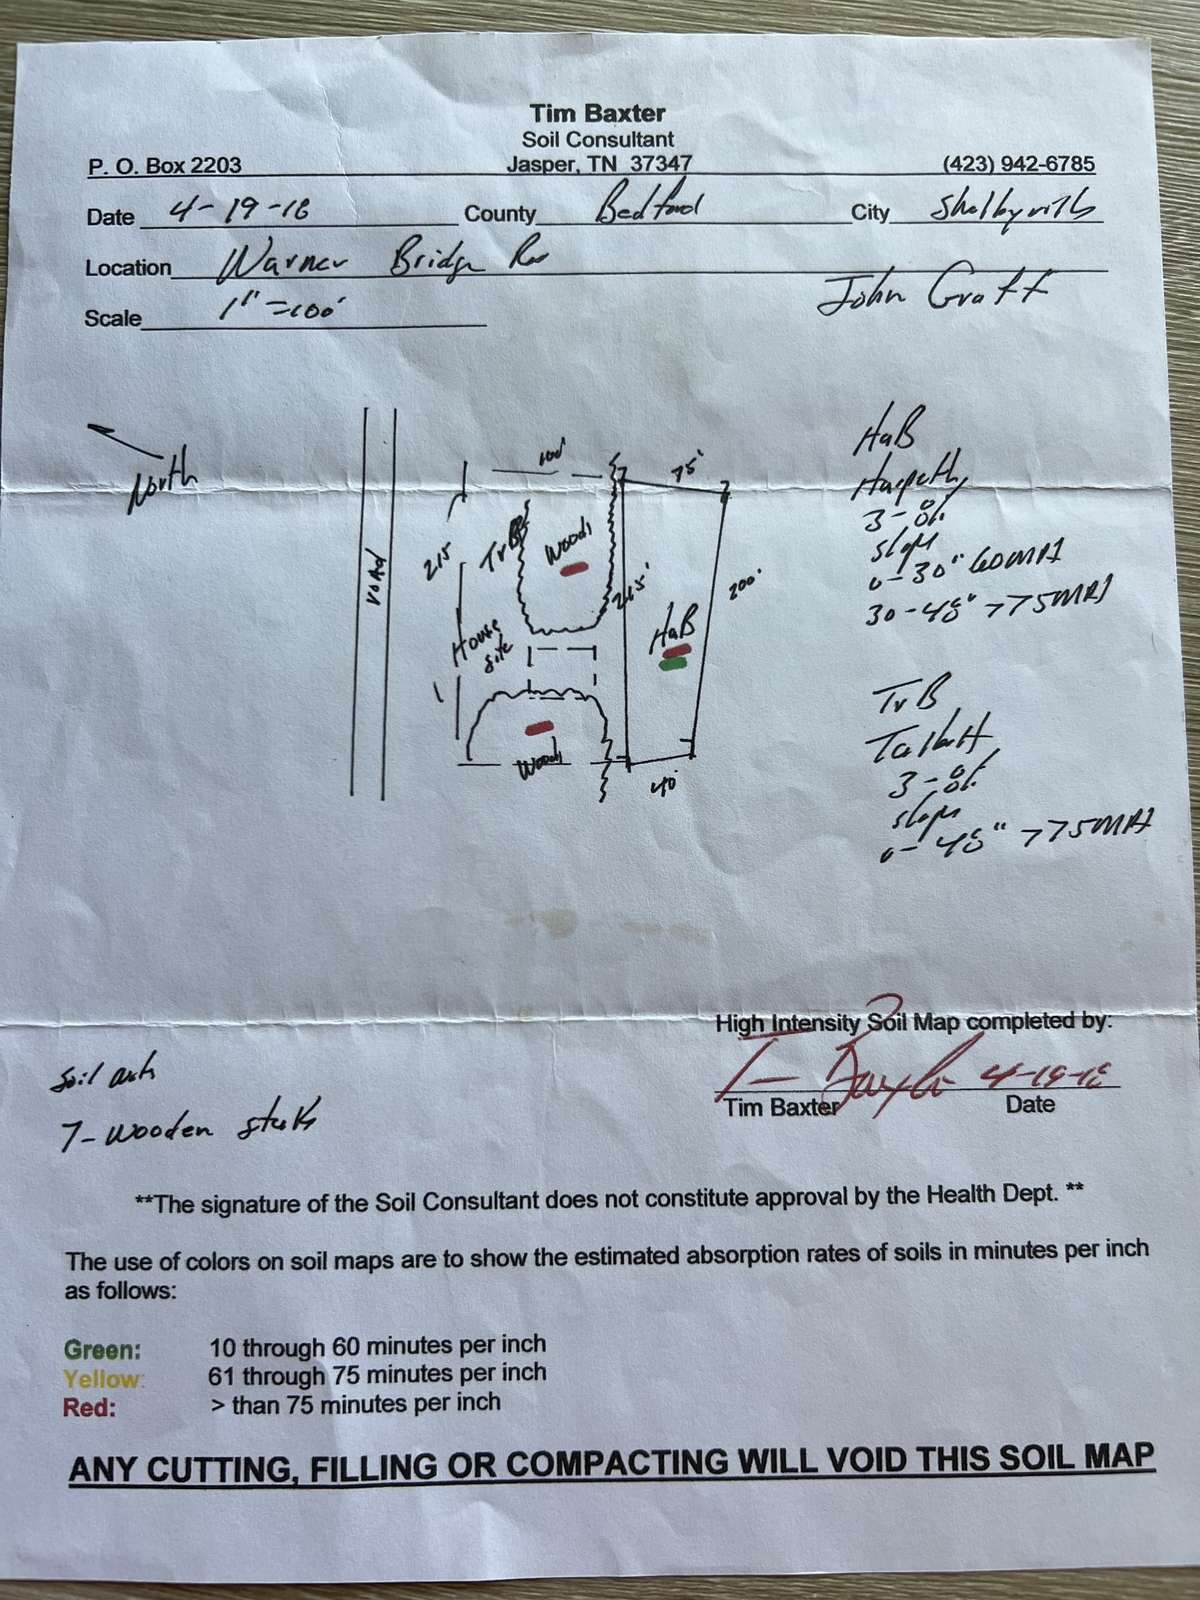 Tim Baxter
Soil Consultant
P. O. Box 2203 Jasper, TN 37347 (423) 942-6785
Date 4-19-18 County Bedford City Shelbyville
Location Warner Bridge Rd
Scale 1"=100'
John Graff
North
road
100'
75'
215
TrB
Woods
215'
200'
HaB
House
site
Woods
40'
HaB
Harpeth
3-8%
slope
0-30" 60MPI
30-48" >75MPI
TrB
Talbott
3-8%
slope
0-48" >75MPI
High Intensity Soil Map completed by:
Tim Baxter 4-19-18
Tim Baxter Date
Soil
7-wooden
**The signature of the Soil Consultant does not constitute approval by the Health Dept. **
The use of colors on soil maps are to show the estimated absorption rates of soils in minutes per inch
as follows:
Green: 10 through 60 minutes per inch
Yellow: 61 through 75 minutes per inch
Red: > than 75 minutes per inch
ANY CUTTING, FILLING OR COMPACTING WILL VOID THIS SOIL MAP